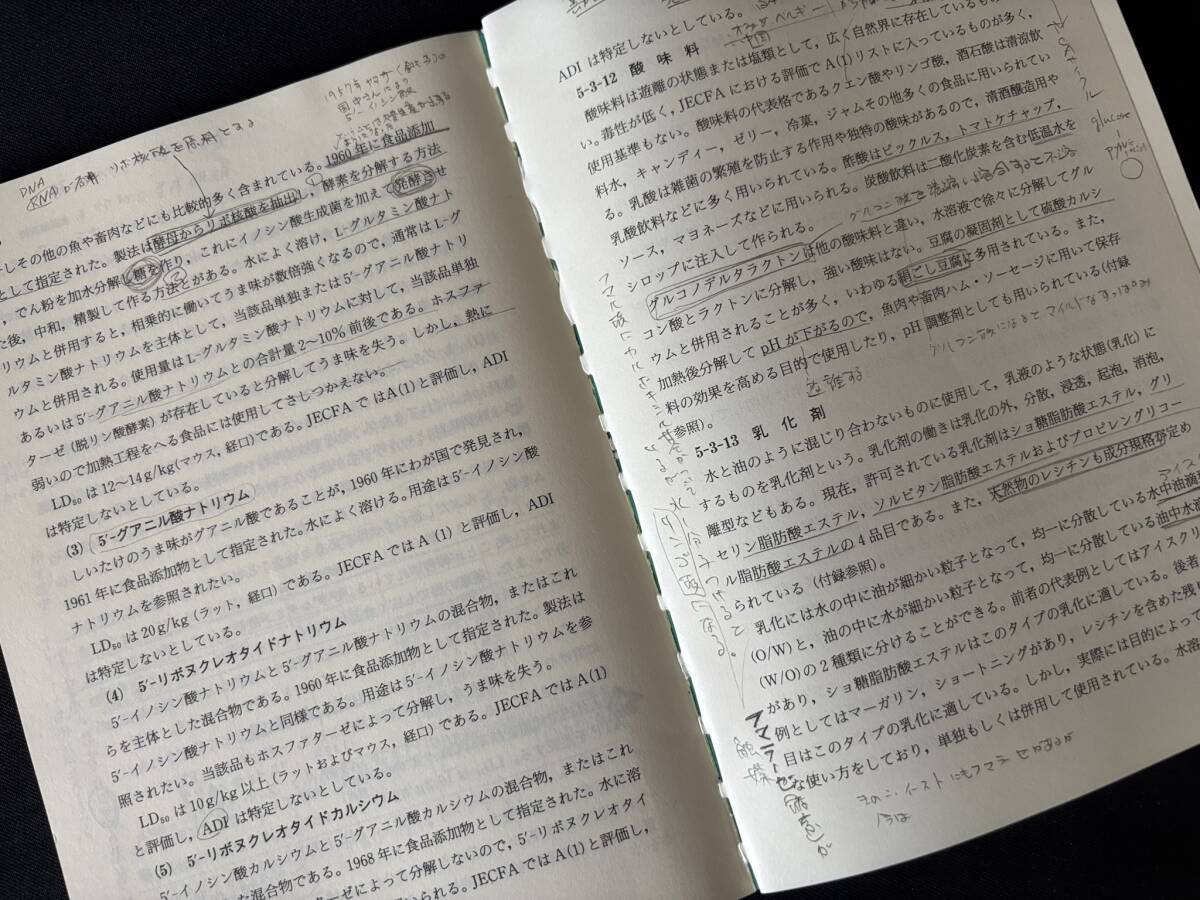 DNA
RNA
リボ核酸を原料とする
その他の魚や畜肉などにも比較的多く含まれている。1960年に食品添加
として指定された。製法は酵母からリボ核酸を抽出し，酵素を分解する方法
，でん粉を加水分解し糖を作り，これにイノシン酸生成菌を加えて発酵させ
た後，中和，精製して作る方法とがある。水によく溶け，L-グルタミン酸ナト
リウムと併用すると，相乗的に働いてうま味が数倍強くなるので，通常はL-グ
ルタミン酸ナトリウムを主体として，当該品単独または5′-グアニル酸ナトリ
ウムと併用される。使用量はL-グルタミン酸ナトリウムに対して，当該品単独
あるいは5′-グアニル酸ナトリウムとの合計量2～10%前後である。ホスファ
ターゼ（脱リン酸酵素）が存在していると分解してうま味を失う。しかし，熱に
弱いので加熱工程をへる食品には使用してさしつかえない。
LD50は12～14g/kg(マウス，経口)である。JECFAではA(1)と評価し，ADI
は特定しないとしている。
(3) 5′-グアニル酸ナトリウム
しいたけのうま味がグアニル酸であることが，1960年にわが国で発見され，
1961年に食品添加物として指定された。水によく溶ける。用途は5′-イノシン酸
ナトリウムを参照されたい。
LD50は20g/kg(ラット，経口)である。JECFAではA(1)と評価し，ADI
は特定しないとしている。
(4) 5′-リボヌクレオタイドナトリウム
5′-イノシン酸ナトリウムと5′-グアニル酸ナトリウムの混合物，またはこれ
らを主体とした混合物である。1960年に食品添加物として指定された。製法は
5′-イノシン酸ナトリウムと同様である。用途は5′-イノシン酸ナトリウムを参
照されたい。当該品もホスファターゼによって分解し，うま味を失う。
LD50は10g/kg以上(ラットおよびマウス，経口)である。JECFAではA(1)
と評価し，ADIは特定しないとしている。
(5) 5′-リボヌクレオタイドカルシウム
5′-イノシン酸カルシウムと5′-グアニル酸カルシウムの混合物，またはこれ
た混合物である。1968年に食品添加物として指定された。水に溶
ーゼによって分解しないので，5′-リボヌクレオタイ
いられる。JECFAではA(1)と評価し，
ADIは特定しないとしている。
5-3-12 酸味料
酸味料は遊離の状態または塩類として，広く自然界に存在しているもの
い。毒性が低く，JECFAにおける評価でA(1)リストに入っているものが多く，
使用基準もない。酸味料の代表格であるクエン酸やリンゴ酸，酒石酸は清涼飲
料水，キャンディー，ゼリー，冷菓，ジャムその他多くの食品に用いられてい
る。乳酸は雑菌の繁殖を防止する作用や独特の酸味があるので，清酒醸造用や
乳酸飲料などに多く用いられている。酢酸はピックルス，トマトケチャップ，
ソース，マヨネーズなどに用いられる。炭酸飲料は二酸化炭素を含む低温水を
シロップに注入して作られる。
グルコノデルタラクトンは他の酸味料と違い，水溶液で徐々に分解してグル
コン酸とラクトンに分解し，強い酸味はない。豆腐の凝固剤として硫酸カルシ
ウムと併用されることが多く，いわゆる絹ごし豆腐に多用されている。また，
加熱後分解してpHが下がるので，魚肉や畜肉ハム・ソーセージに用いて保存
料の効果を高める目的で使用したり，pH調整剤としても用いられている(付録
参照)。
5-3-13 乳化剤
水と油のように混じり合わないものに使用して，乳液のような状態(乳化)に
するものを乳化剤という。乳化剤の働きは乳化の外，分散，浸透，起泡，消泡，
離型などもある。現在，許可されている乳化剤はショ糖脂肪酸エステル，グリ
セリン脂肪酸エステル，ソルビタン脂肪酸エステルおよびプロピレングリコー
ル脂肪酸エステルの4品目である。また，天然物のレシチンも成分規格が定め
られている(付録参照)。
乳化には水の中に油が細かい粒子となって，均一に分散している水中油滴型
(O/W)と，油の中に水が細かい粒子となって，均一に分散している油中水滴
(W/O)の2種類に分けることができる。前者の代表例としてはアイスクリ
があり，ショ糖脂肪酸エステルはこのタイプの乳化に適している。後者
例としてはマーガリン，ショートニングがあり，レシチンを含めた残
目はこのタイプの乳化に適している。しかし，実際には目的によって
な使い方をしており，単独もしくは併用して使用されている。水溶
glucose